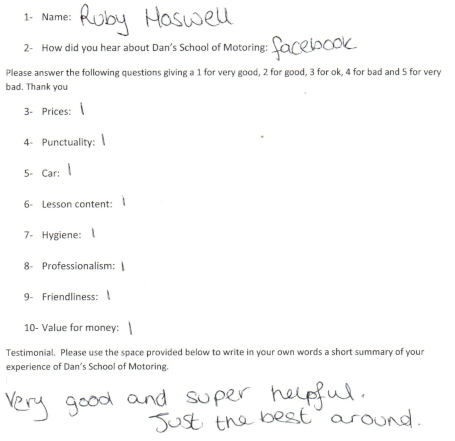 1- Name: Ruby Haswell
2- How did you hear about Dan's School of Motoring: facebook
Please answer the following questions giving a 1 for very good, 2 for good, 3 for ok, 4 for bad and 5 for very
bad. Thank you
3- Prices: 1
4- Punctuality: 1
5- Car: 1
6- Lesson content: 1
7- Hygiene: 1
8- Professionalism: 1
9- Friendliness: 1
10- Value for money: 1
Testimonial. Please use the space provided below to write in your own words a short summary of your
experience of Dan's School of Motoring.
Very good and super helpful.
Just the best around.